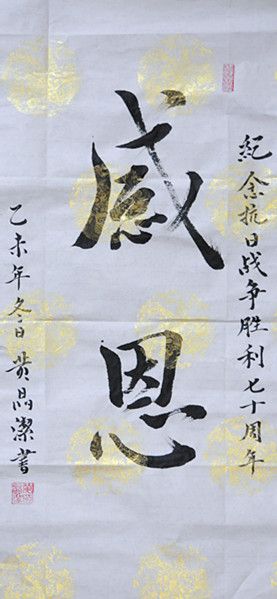 紀念抗日战争胜利七十周年
感
恩
乙未年冬日黄晶潔書